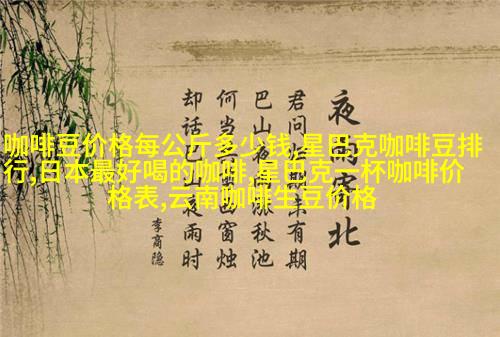 咖啡豆价格每公斤多少钱,星巴克咖啡豆排
行,日本最好喝的咖啡,星巴克一杯咖啡价
格表,云南咖啡生豆价格
夜雨北
君问来有期
巴山夜雨涨秋池
何当西窗烛
却话巴山夜雨时
李商隐